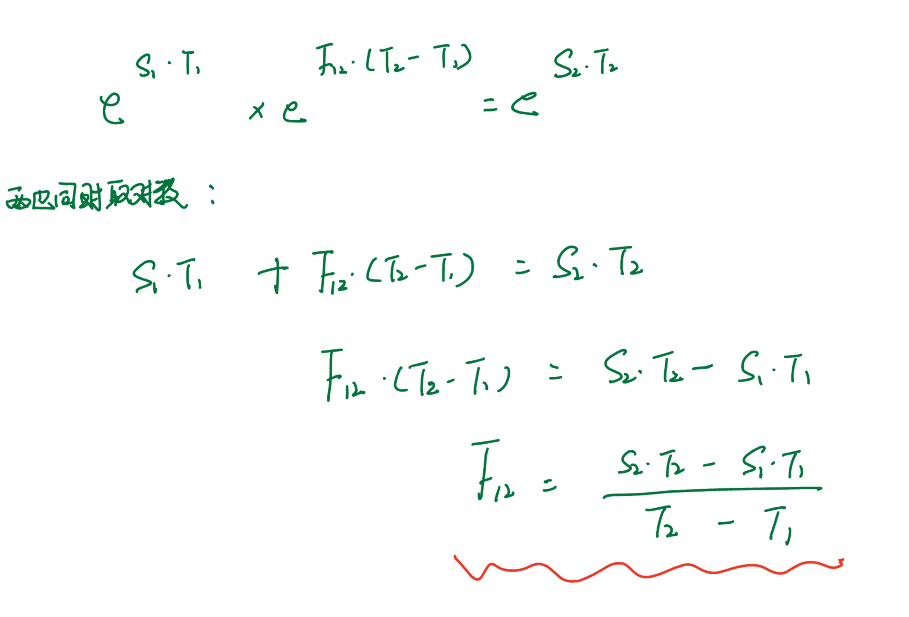 e^{S₁·T₁} × e^{F₁₂·(T₂-T₁)} = e^{S₂·T₂}
两边同时取对数：
S₁·T₁ + F₁₂·(T₂-T₁) = S₂·T₂
F₁₂·(T₂-T₁) = S₂·T₂ - S₁·T₁
F₁₂ = \frac{S₂·T₂ - S₁·T₁}{T₂ - T₁}